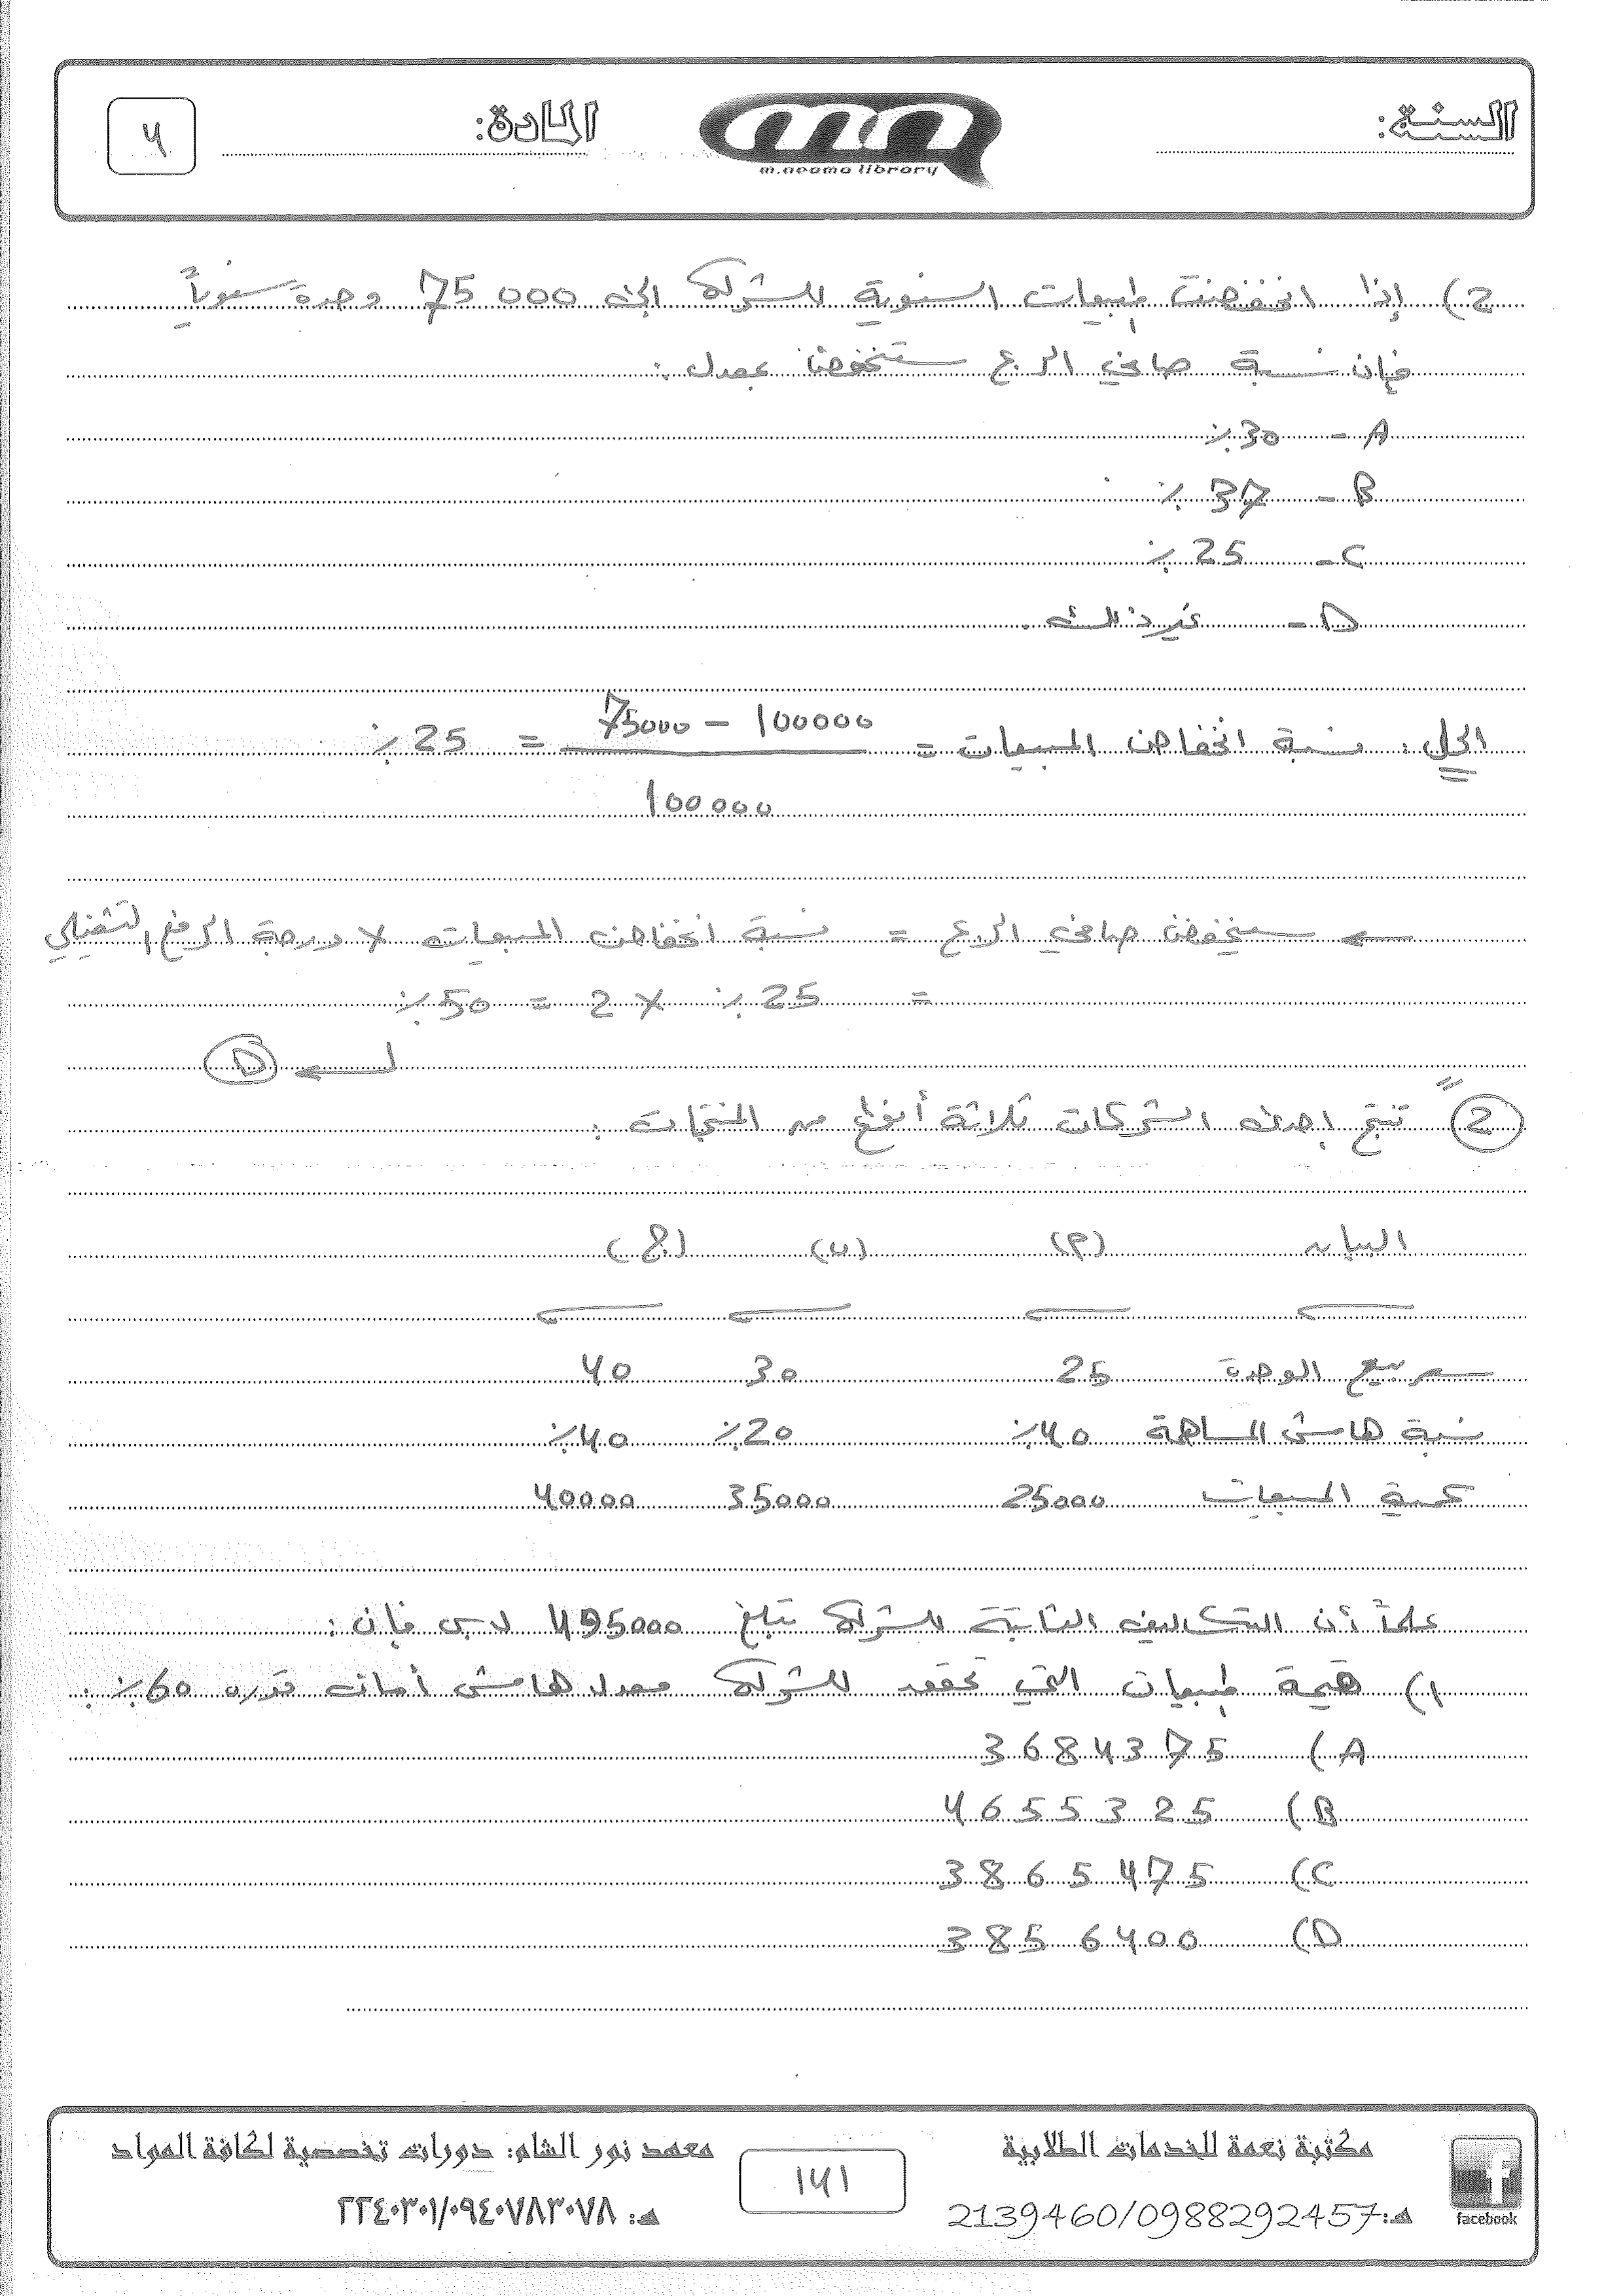 السنة:
المادة:
4
m.neama library
2) إذا انخفضت مبيعات السنوية للشركة إلى 75000 وحدة سنوياً
فإن نسبة صافي الربح ستنخفض بمعدل :
A - 30٪
B - 37٪
C - 25٪
D - غير ذلك .
الحل : نسبة انخفاض المبيعات = 75000 - 100000 = 25٪
100000
← سينخفض صافي الربح = نسبة انخفاض المبيعات × درجة الرفع التشغيلي
= 25٪ × 2 = 50٪
← D
2 تنتج إحدى الشركات ثلاثة أنواع من المنتجات :
البيان (م) (ب) (ج)
سعر بيع الوحدة 25 30 40
نسبة هامش المساهمة 40٪ 20٪ 40٪
كمية المبيعات 25000 35000 40000
علماً أن التكاليف الثابتة للشركة تبلغ 495000 ل.س فإن :
1) قيمة مبيعات التي تحقق للشركة معدل هامش أمان قدره 60٪ :
A) 3684375
B) 4655325
C) 3865475
D) 3856400
مكتبة نعمة للخدمات الطلابية
هـ: 2139460/0988292457
141
معهد نور الشام: دورات تخصصية لكافة المواد
هـ: ٢٢٤٠٣٠١/٠٩٤٠٧٨٣٠٧٨
facebook